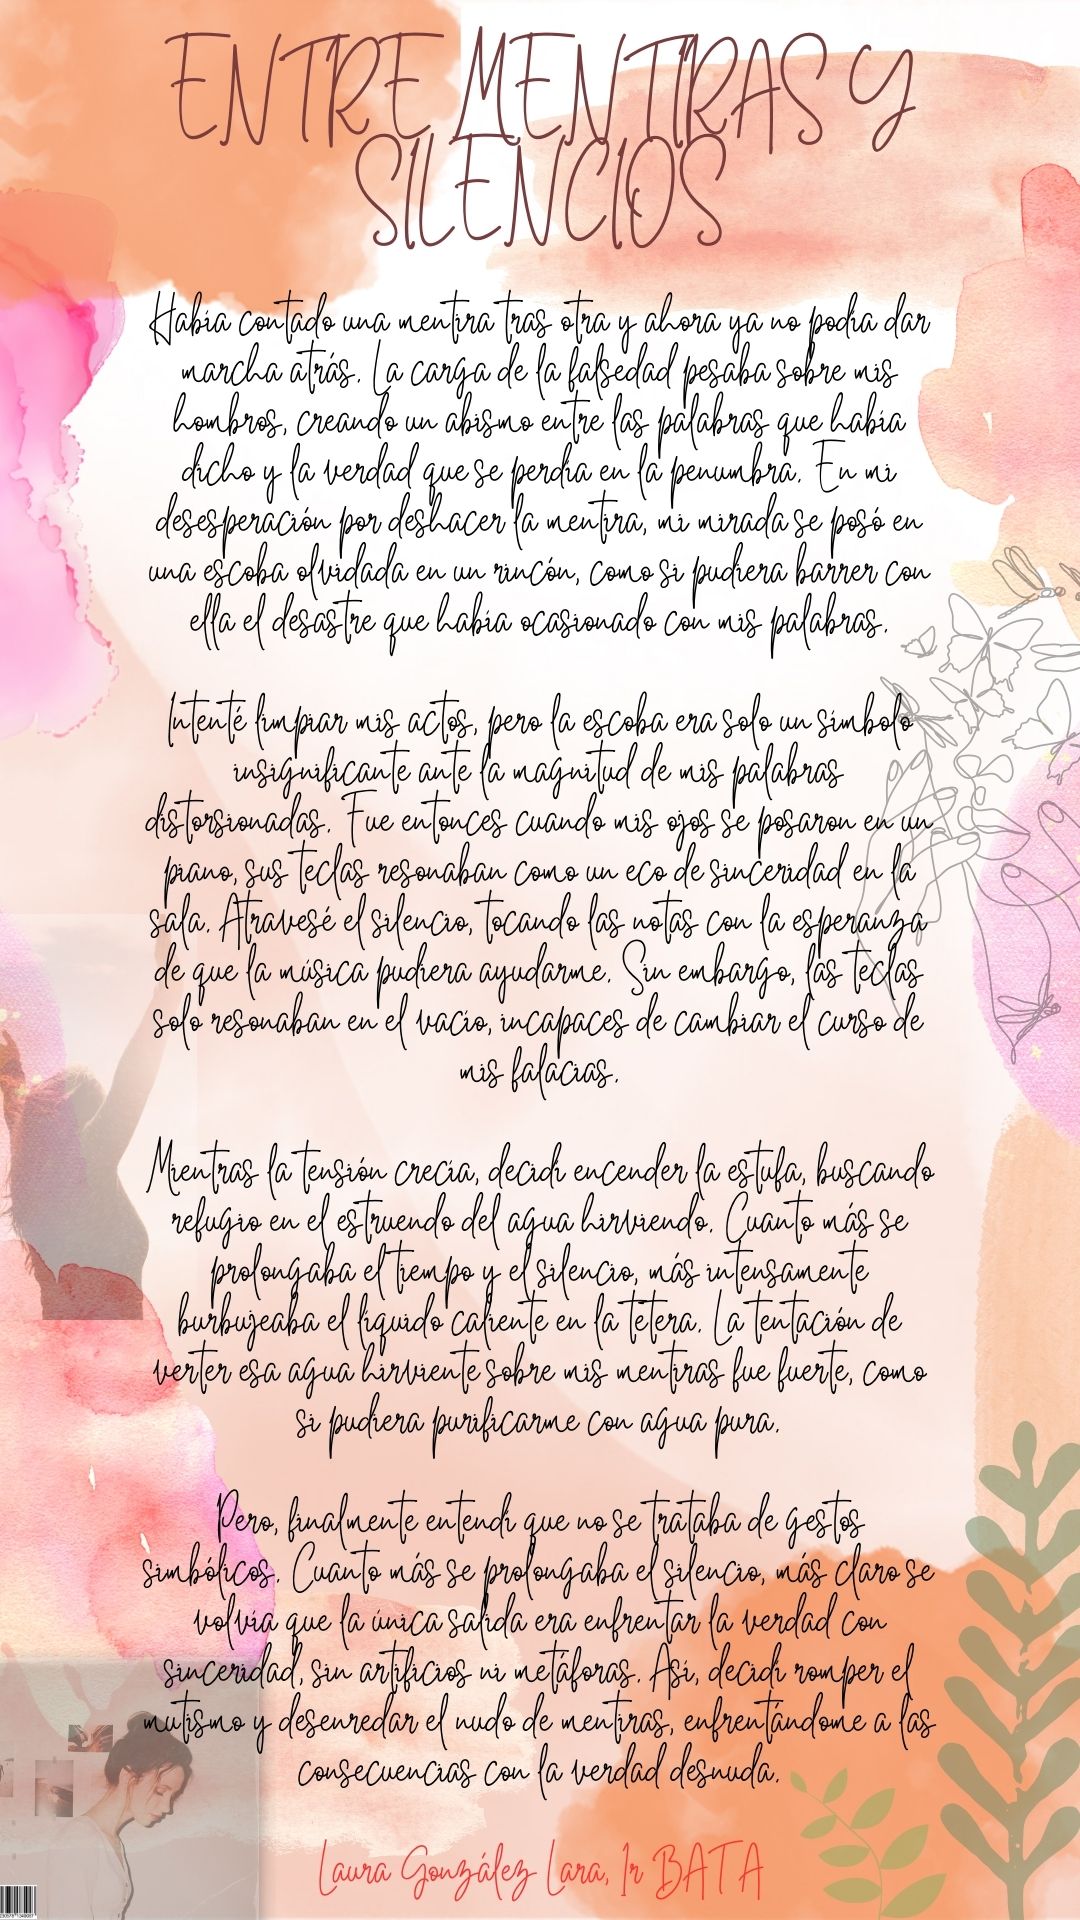 ENTRE MENTIRAS Y
SILENCIOS
Había contado una mentira tras otra y ahora ya no podía dar
marcha atrás. La carga de la falsedad pesaba sobre mis
hombros, creando un abismo entre las palabras que había
dicho y la verdad que se perdía en la penumbra. En mi
desesperación por deshacer la mentira, mi mirada se posó en
una escoba olvidada en un rincón, como si pudiera barrer con
ella el desastre que había ocasionado con mis palabras.
Intenté limpiar mis actos, pero la escoba era solo un símbolo
insignificante ante la magnitud de mis palabras
distorsionadas. Fue entonces cuando mis ojos se posaron en un
piano, sus teclas resonaban como un eco de sinceridad en la
sala. Atravesé el silencio, tocando las notas con la esperanza
de que la música pudiera ayudarme. Sin embargo, las teclas
solo resonaban en el vacío, incapaces de cambiar el curso de
mis falacias.
Mientras la tensión crecía, decidí encender la estufa, buscando
refugio en el estruendo del agua hirviendo. Cuanto más se
prolongaba el tiempo y el silencio, más intensamente
burbujeaba el líquido caliente en la tetera. La tentación de
verter esa agua hirviente sobre mis mentiras fue fuerte, como
si pudiera purificarme con agua pura.
Pero, finalmente entendí que no se trataba de gestos
simbólicos. Cuanto más se prolongaba el silencio, más claro se
volvía que la única salida era enfrentar la verdad con
sinceridad, sin artificios ni metáforas. Así, decidí romper el
mutismo y desenredar el nudo de mentiras, enfrentándome a las
consecuencias con la verdad desnuda.
Laura González Lara, 1r BATA